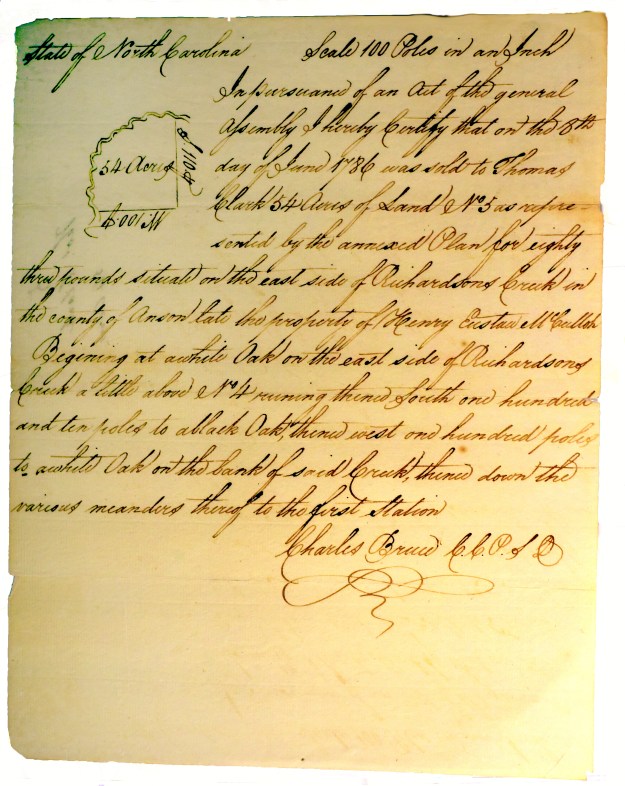 State of North Carolina Scale 100 Poles in an Inch
In pursuance of an act of the general
Assembly I hereby Certify that on the 8th
day of June 1786 was sold to Thomas
Clark 54 Acres of Land No 5 as repre-
sented by the annexed Plan for eighty
three pounds situate on the east side of Richardsons Creek in
the county of Anson late the property of Henry Eustace McCulloh
Begining at a white Oak on the east side of Richardsons
Creek a little above No 4 runing thence South one hundred
and ten poles to a black Oak, thence west one hundred poles
to a white Oak on the bank of said Creek, thence down the
various meanders thereof to the first Station
Charles Bruce C.C.P.S D
54 Acres
S. 110 P
W. 100 P